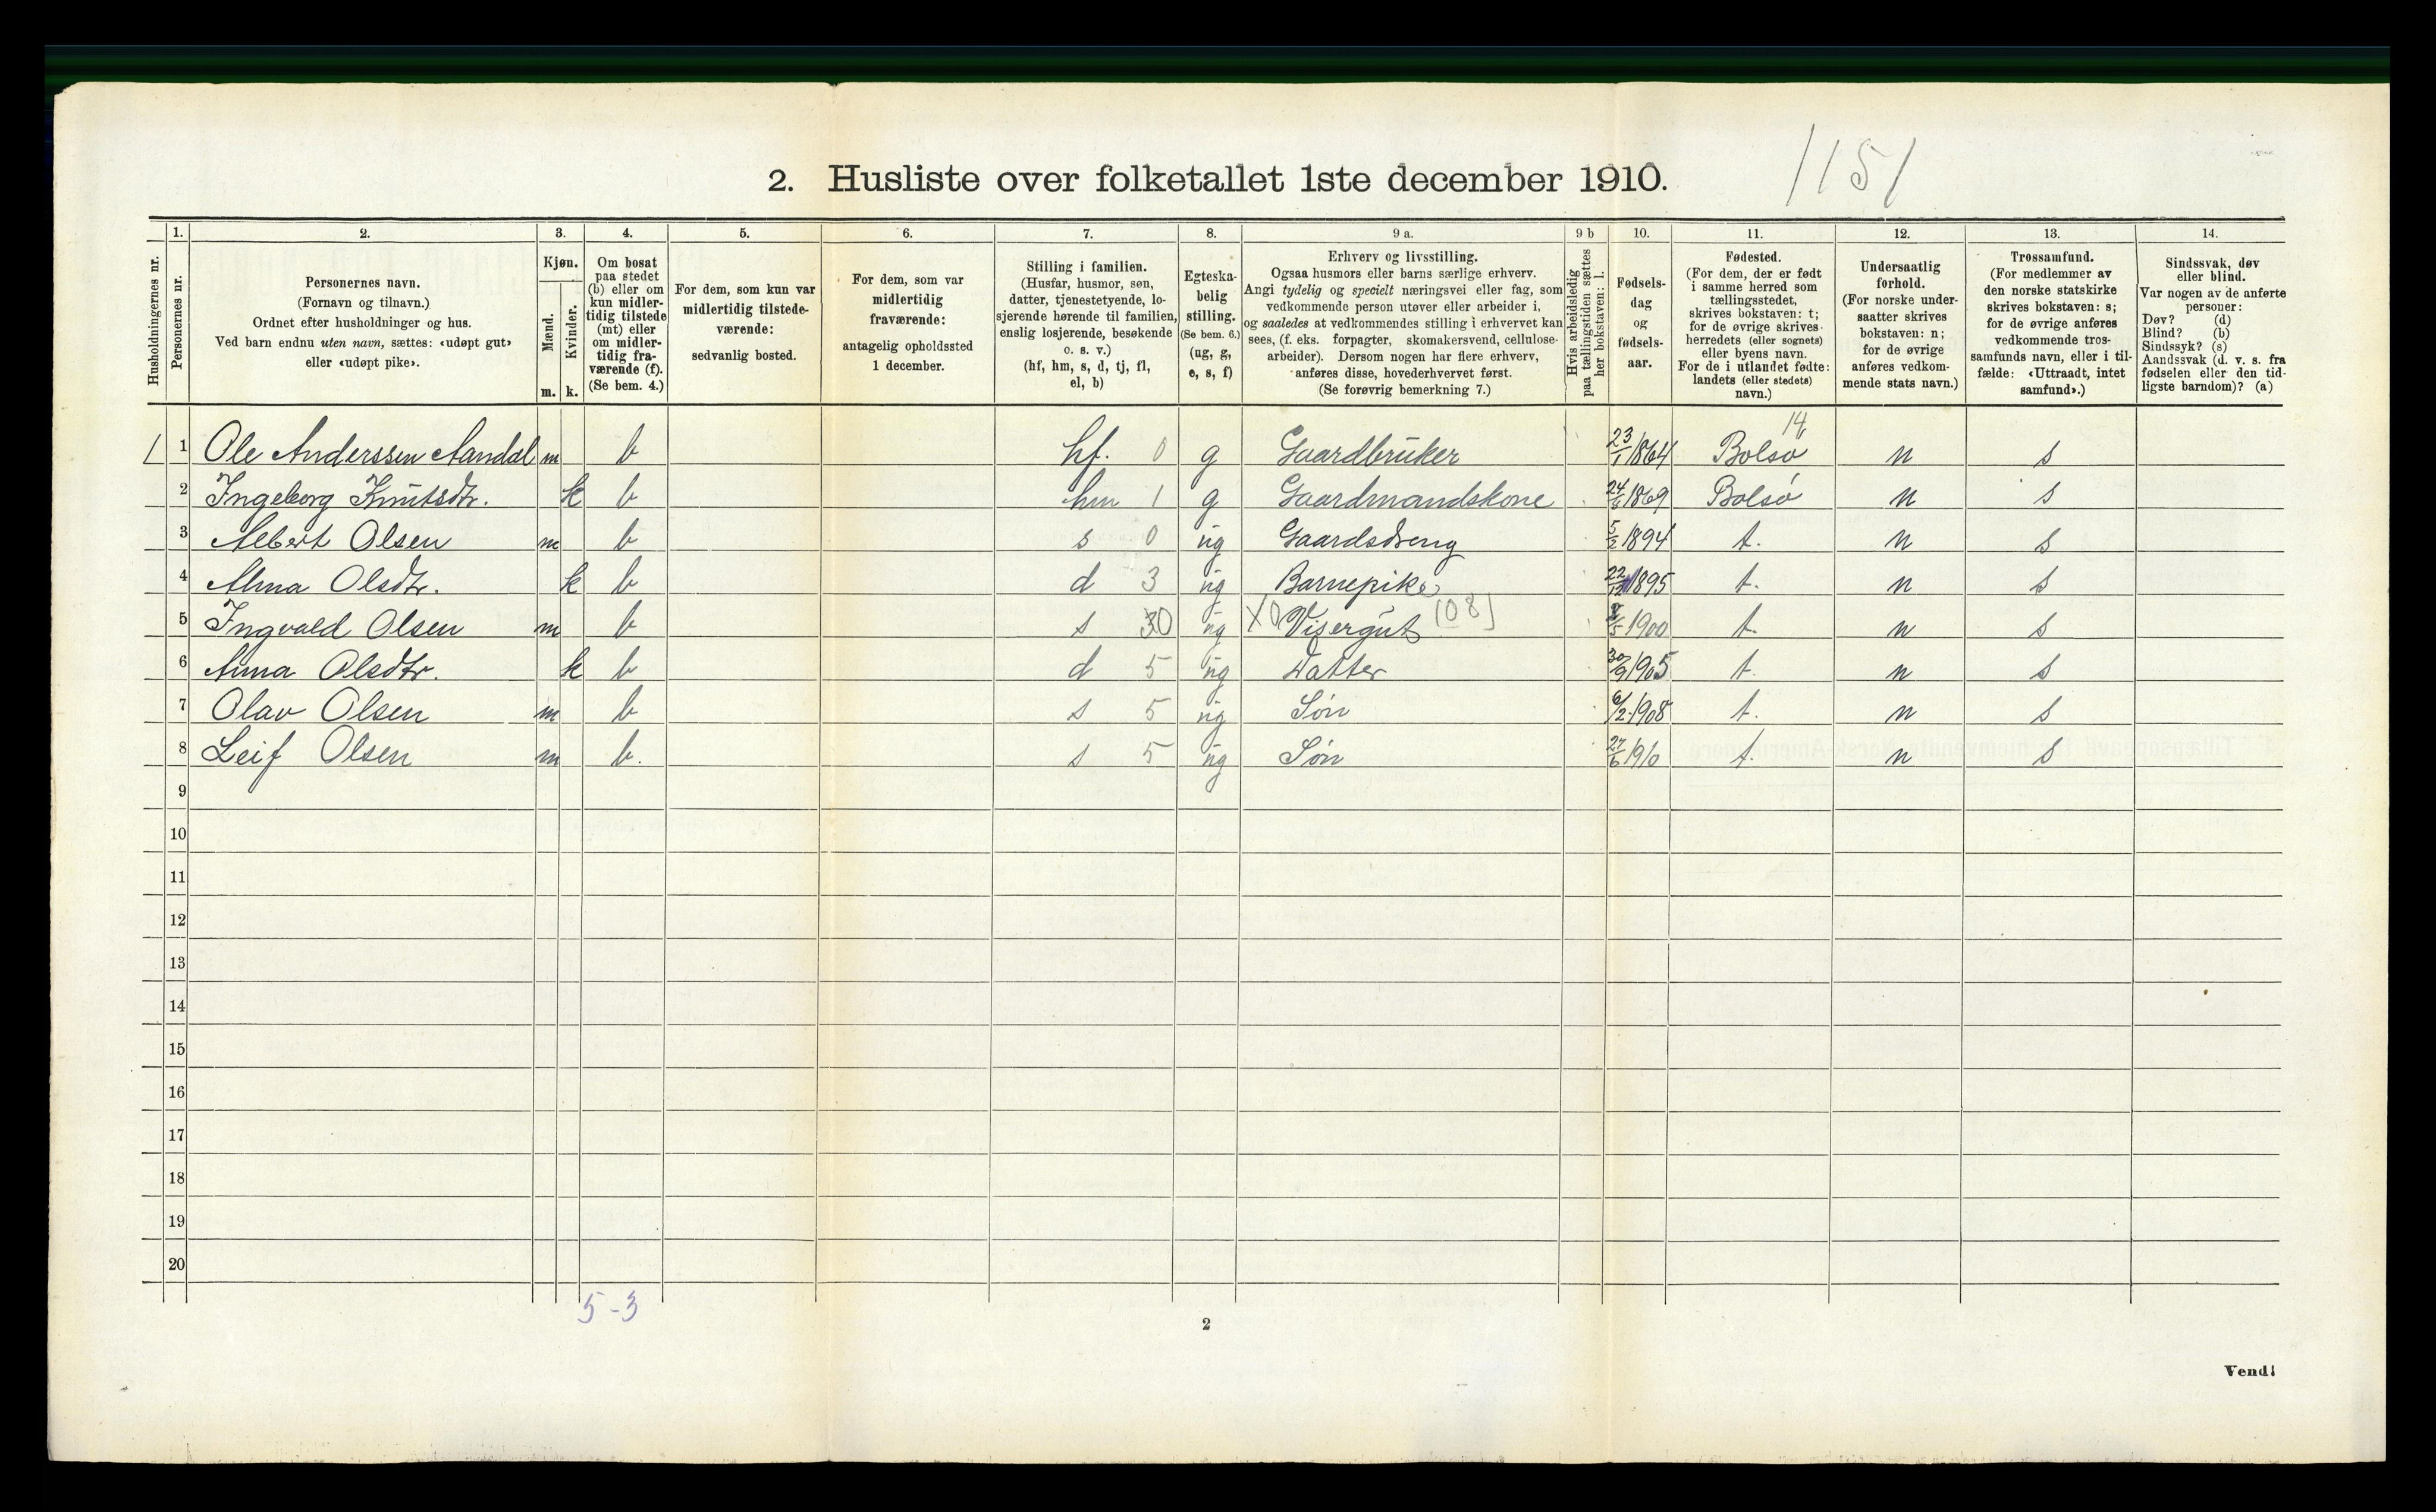 1151
2. Husliste over folketallet 1ste december 1910.
Husholdningernes nr.
1. Personernes nr.
2. Personernes navn.
(Fornavn og tilnavn.)
Ordnet efter husholdninger og hus.
Ved barn endnu uten navn, sættes: «udøpt gut»
eller «udøpt pike».
3. Kjøn.
Mænd. m.
Kvinder. k.
4. Om bosat
paa stedet
(b) eller om
kun midler-
tidig tilstede
(mt) eller
om midler-
tidig fra-
værende (f).
(Se bem. 4.)
5. For dem, som kun var
midlertidig tilstede-
værende:
sedvanlig bosted.
6. For dem, som var
midlertidig
fraværende:
antagelig opholdssted
1 december.
7. Stilling i familien.
(Husfar, husmor, søn,
datter, tjenestetyende, lo-
sjerende hørende til familien,
enslig losjerende, besøkende
o. s. v.)
(hf, hm, s, d, tj, fl,
el, b)
8. Egteska-
belig
stilling.
(Se bem. 6.)
(ug, g,
e, s, f)
9 a. Erhverv og livsstilling.
Ogsaa husmors eller barns særlige erhverv.
Angi tydelig og specielt næringsvei eller fag, som
vedkommende person utøver eller arbeider i,
og saaledes at vedkommendes stilling i erhvervet kan
sees, (f. eks. forpagter, skomakersvend, cellulose-
arbeider). Dersom nogen har flere erhverv,
anføres disse, hovederhvervet først.
(Se forøvrig bemerkning 7.)
9 b Hvis arbeidsledig
paa tællingstiden sættes
her bokstaven: l.
10. Fødsels-
dag
og
fødsels-
aar.
11. Fødested.
(For dem, der er født
i samme herred som
tællingsstedet,
skrives bokstaven: t;
for de øvrige skrives
herredets (eller sognets)
eller byens navn.
For de i utlandet fødte:
landets (eller stedets)
navn.)
12. Undersaatlig
forhold.
(For norske under-
saatter skrives
bokstaven: n;
for de øvrige
anføres vedkom-
mende stats navn.)
13. Trossamfund.
(For medlemmer av
den norske statskirke
skrives bokstaven: s;
for de øvrige anføres
vedkommende tros-
samfunds navn, eller i til-
fælde: «Uttraadt, intet
samfund».)
14. Sindssvak, døv
eller blind.
Var nogen av de anførte
personer:
Døv? (d)
Blind? (b)
Sindssyk? (s)
Aandssvak (d. v. s. fra
fødselen eller den tid-
ligste barndom)? (a)
14
1 1 Ole Anderssen Aandal m b hf. 0 g Gaardbruker 23/1 1864 Bolsø n s
2 Ingeborg Knutsdtr. k b hm 1 g Gaardmandskone 24/6 1869 Bolsø n s
3 Albert Olsen m b s 0 ug Gaardsdreng 5/2 1894 t. n s
4 Alma Olsdtr. k b d 3 ug Barnepike 22/12 1895 t. n s
5 Ingvald Olsen m b s 30 ug X0 Visergut [08] /5 1900 t. n s
6 Anna Olsdtr. k b d 5 ug Datter 30/9 1905 t. n s
7 Olav Olsen m b s 5 ug Søn 6/2 1908 t. n s
8 Leif Olsen m b. s 5 ug Søn 27/6 1910 t. n s
9
10
11
12
13
14
15
16
17
18
19
20
5-3
2
Vend!